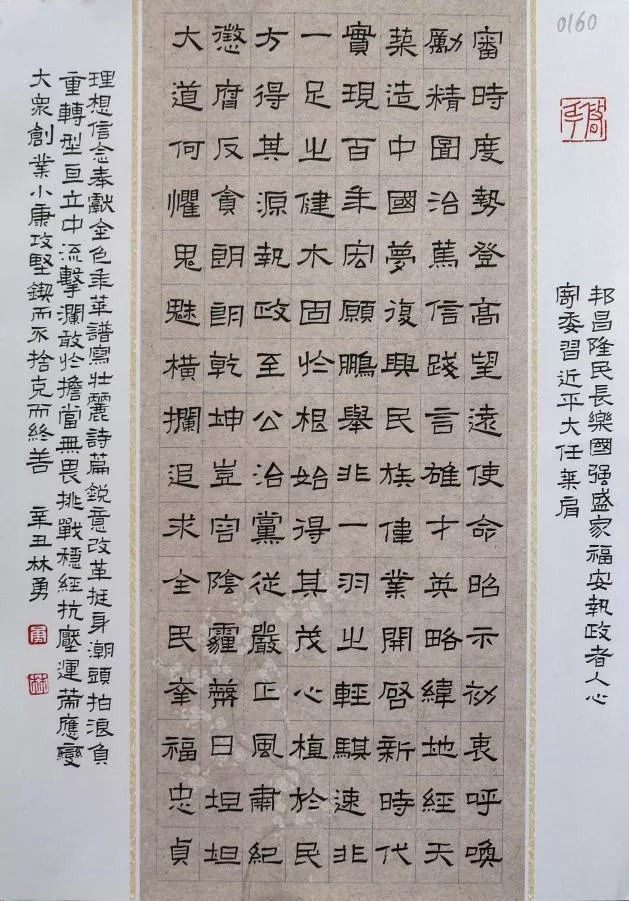 0160
邦昌隆民長樂國强盛家福安執政者人心
寄委習近平大任肩
審時度勢登高望遠使命昭示初衷呼喚
勵精圖治篤信踐言雄才英略緯地經天
築造中國夢復興民族偉業開啓新時代
實現百年宏願鵬舉非一羽之輕騏速非
一足之健木固於根始得其茂心植於民
方得其源執政至公治黨從嚴正風肅紀
懲腐反貪朗朗乾坤豈容陰霾蔽日坦坦
大道何懼鬼魅橫攔追求全民幸福忠貞
理想信念奉獻金色年華譜寫壯麗詩篇銳意改革挺身潮頭拍浪負
重轉型亘立中流擊瀾敢於擔當無畏挑戰穩經抗壓運籌應變
大衆創業小康攻堅鍥而不捨克而終善 辛丑林勇